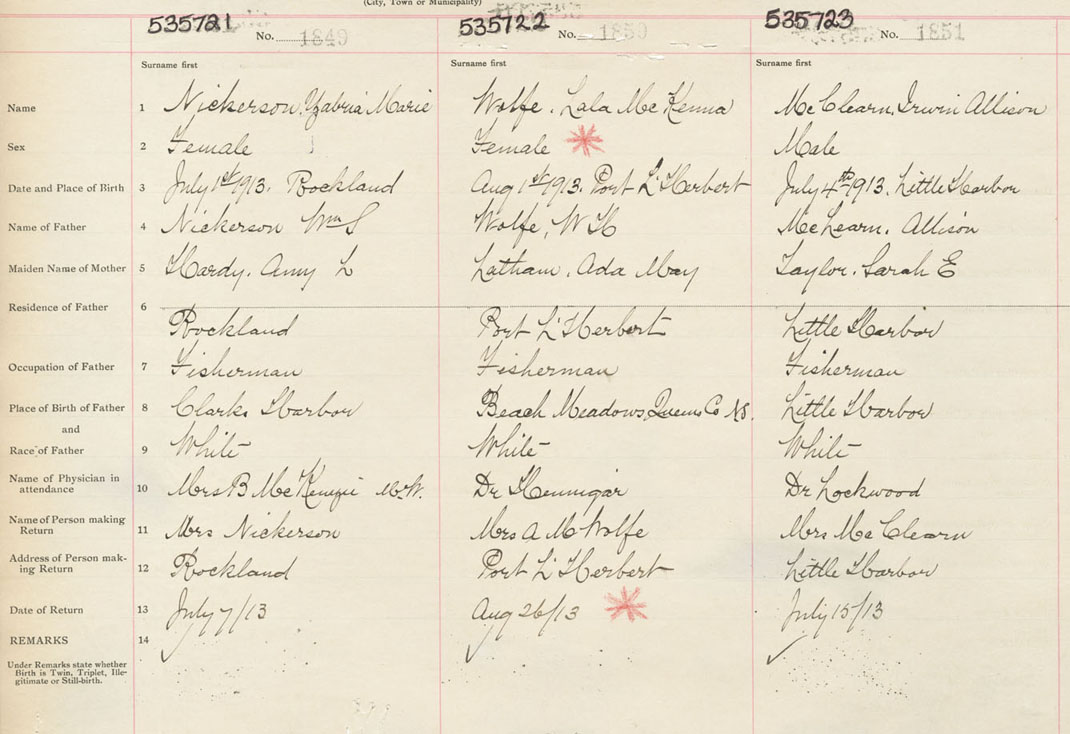 (City, Town or Municipality)
535721 No. 1849 535722 No. 1850 535723 No. 1851
Surname first Surname first Surname first
Name 1 Nickerson, Marie Wolfe, Lala McKenna McClearn, Irwin Allison
Sex 2 Female Female Male
Date and Place of Birth 3 July 1st 1913. Rockland Aug 1st 1913. Port L'Herbert July 4th 1913. Little Harbor
Name of Father 4 Nickerson Wm S Wolfe, W H McLearn, Allison
Maiden Name of Mother 5 Hardy, Amy L Latham, Ada May Taylor, Sarah E
Residence of Father 6 Rockland Port L'Herbert Little Harbor
Occupation of Father 7 Fisherman Fisherman Fisherman
Place of Birth of Father 8 Clarks Harbor Beach Meadows, Queens Co NS. Little Harbor
and
Race of Father 9 White White White
Name of Physician in attendance 10 Mrs B McKenzie M.W. Dr Hennigar Dr Lockwood
Name of Person making Return 11 Mrs Nickerson Mrs A M Wolfe Mrs McClearn
Address of Person mak-
ing Return 12 Rockland Port L'Herbert Little Harbor
Date of Return 13 July 7/13 Aug 26/13 July 15/13
REMARKS 14
Under Remarks state whether
Birth is Twin, Triplet, Ille-
gitimate or Still-birth.